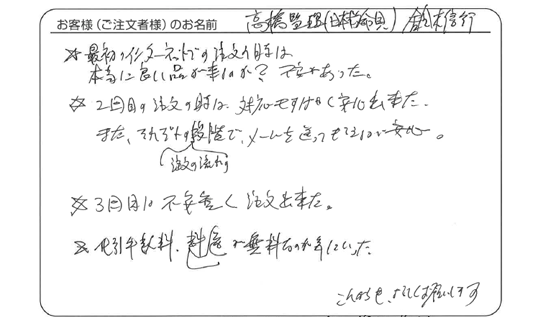 お客様（ご注文者様）のお名前 高橋 鈴木信行
☆ 最初のインターネットでの注文の時は
本当に良い品が来るのか？不安があった。
☆ 2回目の注文の時は、対応もすばやく安心出来た。
また、それぞれの段階で、メールを送ってもらえるので安心。
注文の流れの
☆ 3回目は不安無く注文出来た。
☆ 代引手数料、料 が無料なのが気にいった
これからも、よろしくお願いします